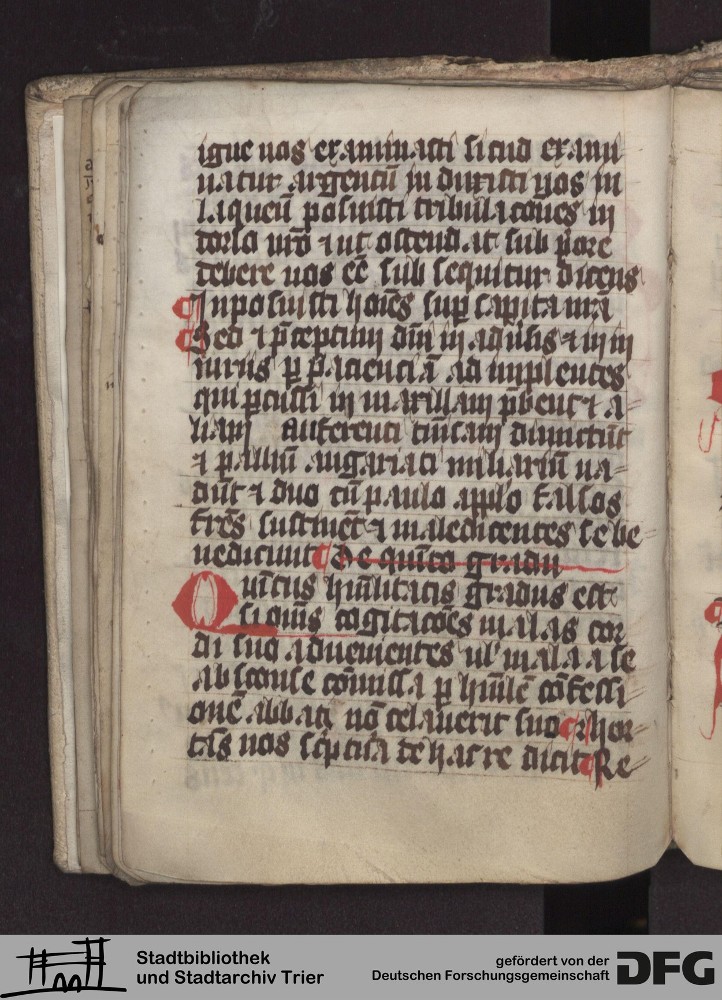 igne nos examinasti sicud exami
natur argentū induxisti nos in
laqueū posuisti tribulatōnes in
dorso nr̄o ⁊ ut ostendat sub p̄ore
debere nos eē subsequitur dicens
Inposuisti hōīes sup capita nr̄a
Sed ⁊ p̄ceptum dn̄i in adūsis ⁊ in in
iuriis p paciencia adimplentes
qui pcussi in maxillam p̄bent ⁊ a-
liam Auferenti tunicam dimittūt
⁊ palliū angariati miliariū va-
dūt ⁊ duo cū paulo applo falsos
fr̄es sustinēt ⁊ maledicentes se be-
nedicunt De quīto gradu
Quintus hūilitatis gradus est
si om̄s cogitacōes malas cor
di suo advenientes ul' mala a se
absconse cōmissa p hūilē cōfessi-
onē abbati nō celaverit suo Hor-
tās nos scͥptura de hac re dicit Re-
Stadtbibliothek
und Stadtarchiv Trier
gefördert von der
Deutschen Forschungsgemeinschaft
DFG